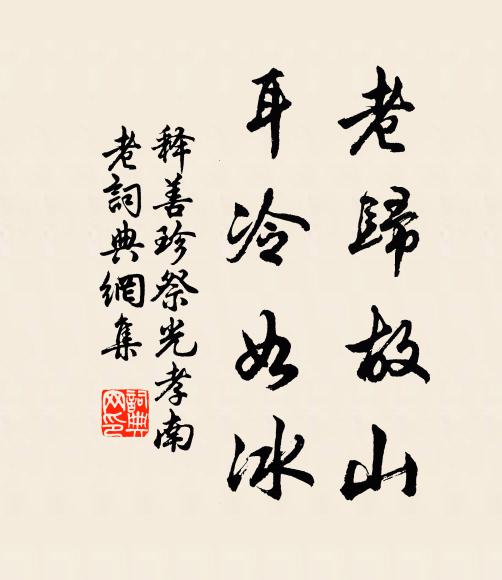 老歸故山
耳冷如冰
釋善珍祭光孝南
老詞典網集
詞典
网印